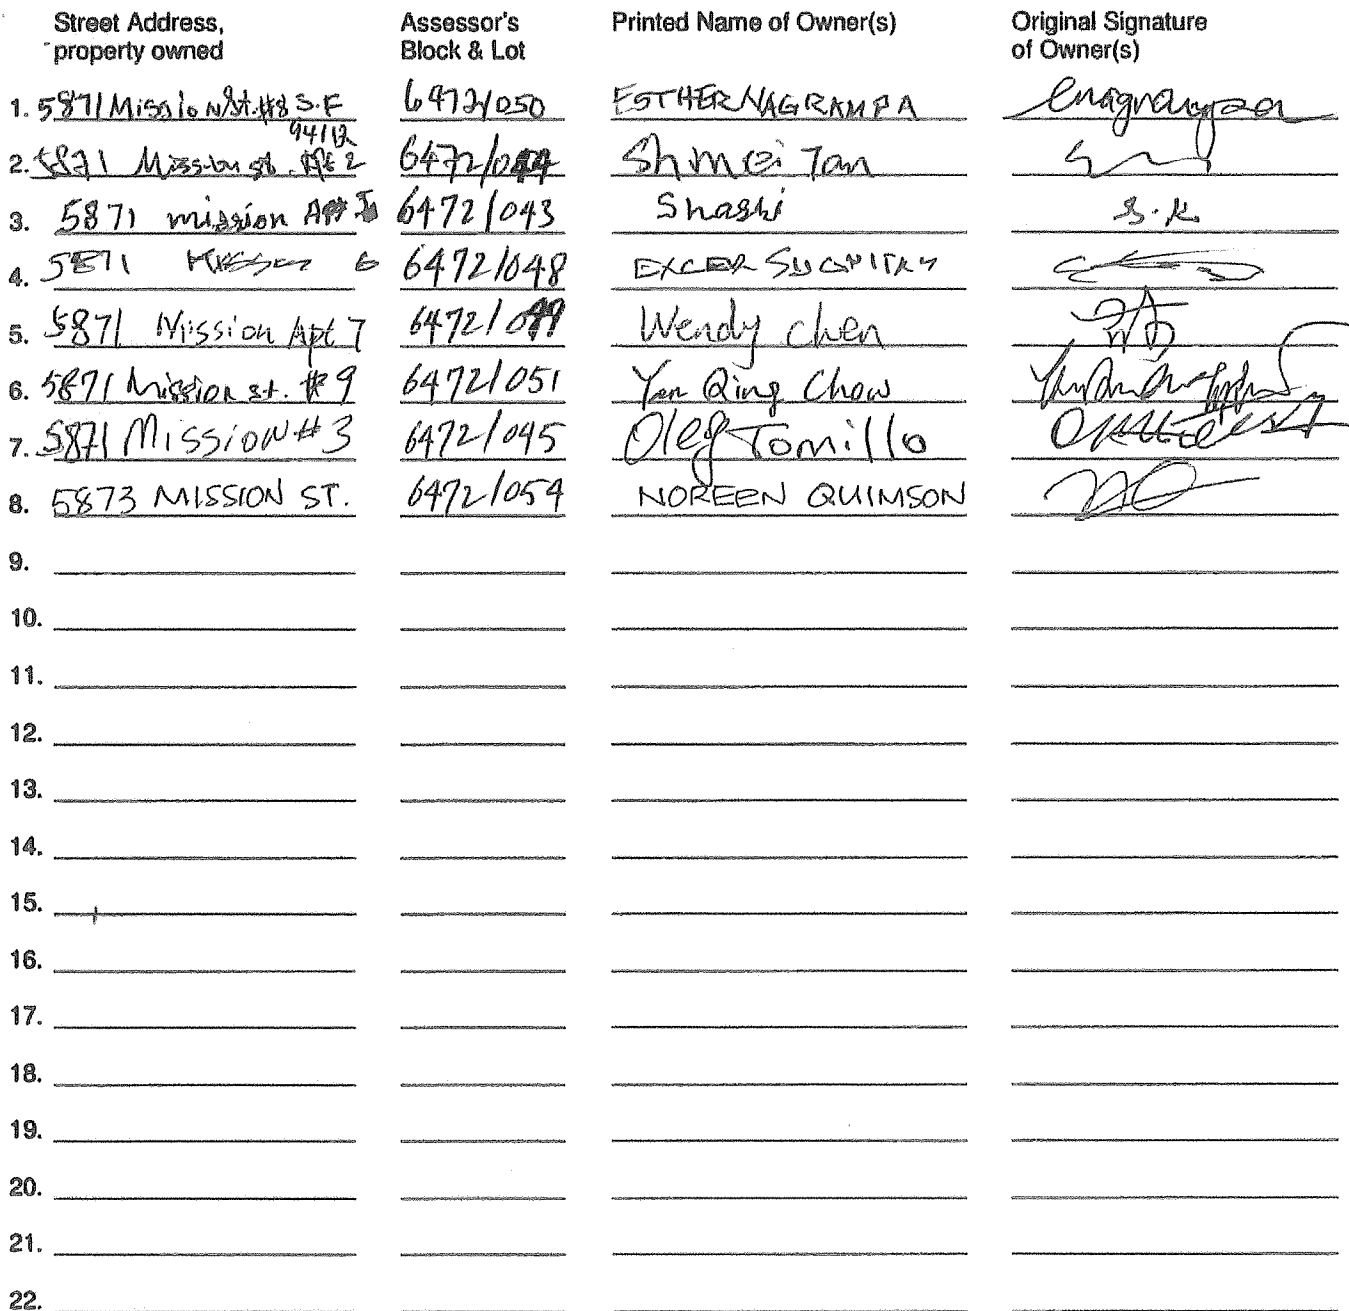 Street Address, property owned Assessor's Block & Lot Printed Name of Owner(s) Original Signature of Owner(s)
1. 5871 Mission St. #8 S.F 94112 6472/050 ESTHER NAGRAMPA
2. 5871 Mission st. Apt 2 6472/044 Shmei Tan
3. 5871 mission Apt 6472/043 Shashi S.K
4. 5871 Mission 6 6472/048 EXCER
5. 5871 Mission Apt 7 6472/049 Wendy Chen
6. 5871 Mission st. #9 6472/051 Yan Qing Chow
7. 5871 Mission #3 6472/045 Oleg Tomillo
8. 5873 MISSION ST. 6472/054 NOREEN QUIMSON
9.
10.
11.
12.
13.
14.
15.
16.
17.
18.
19.
20.
21.
22.